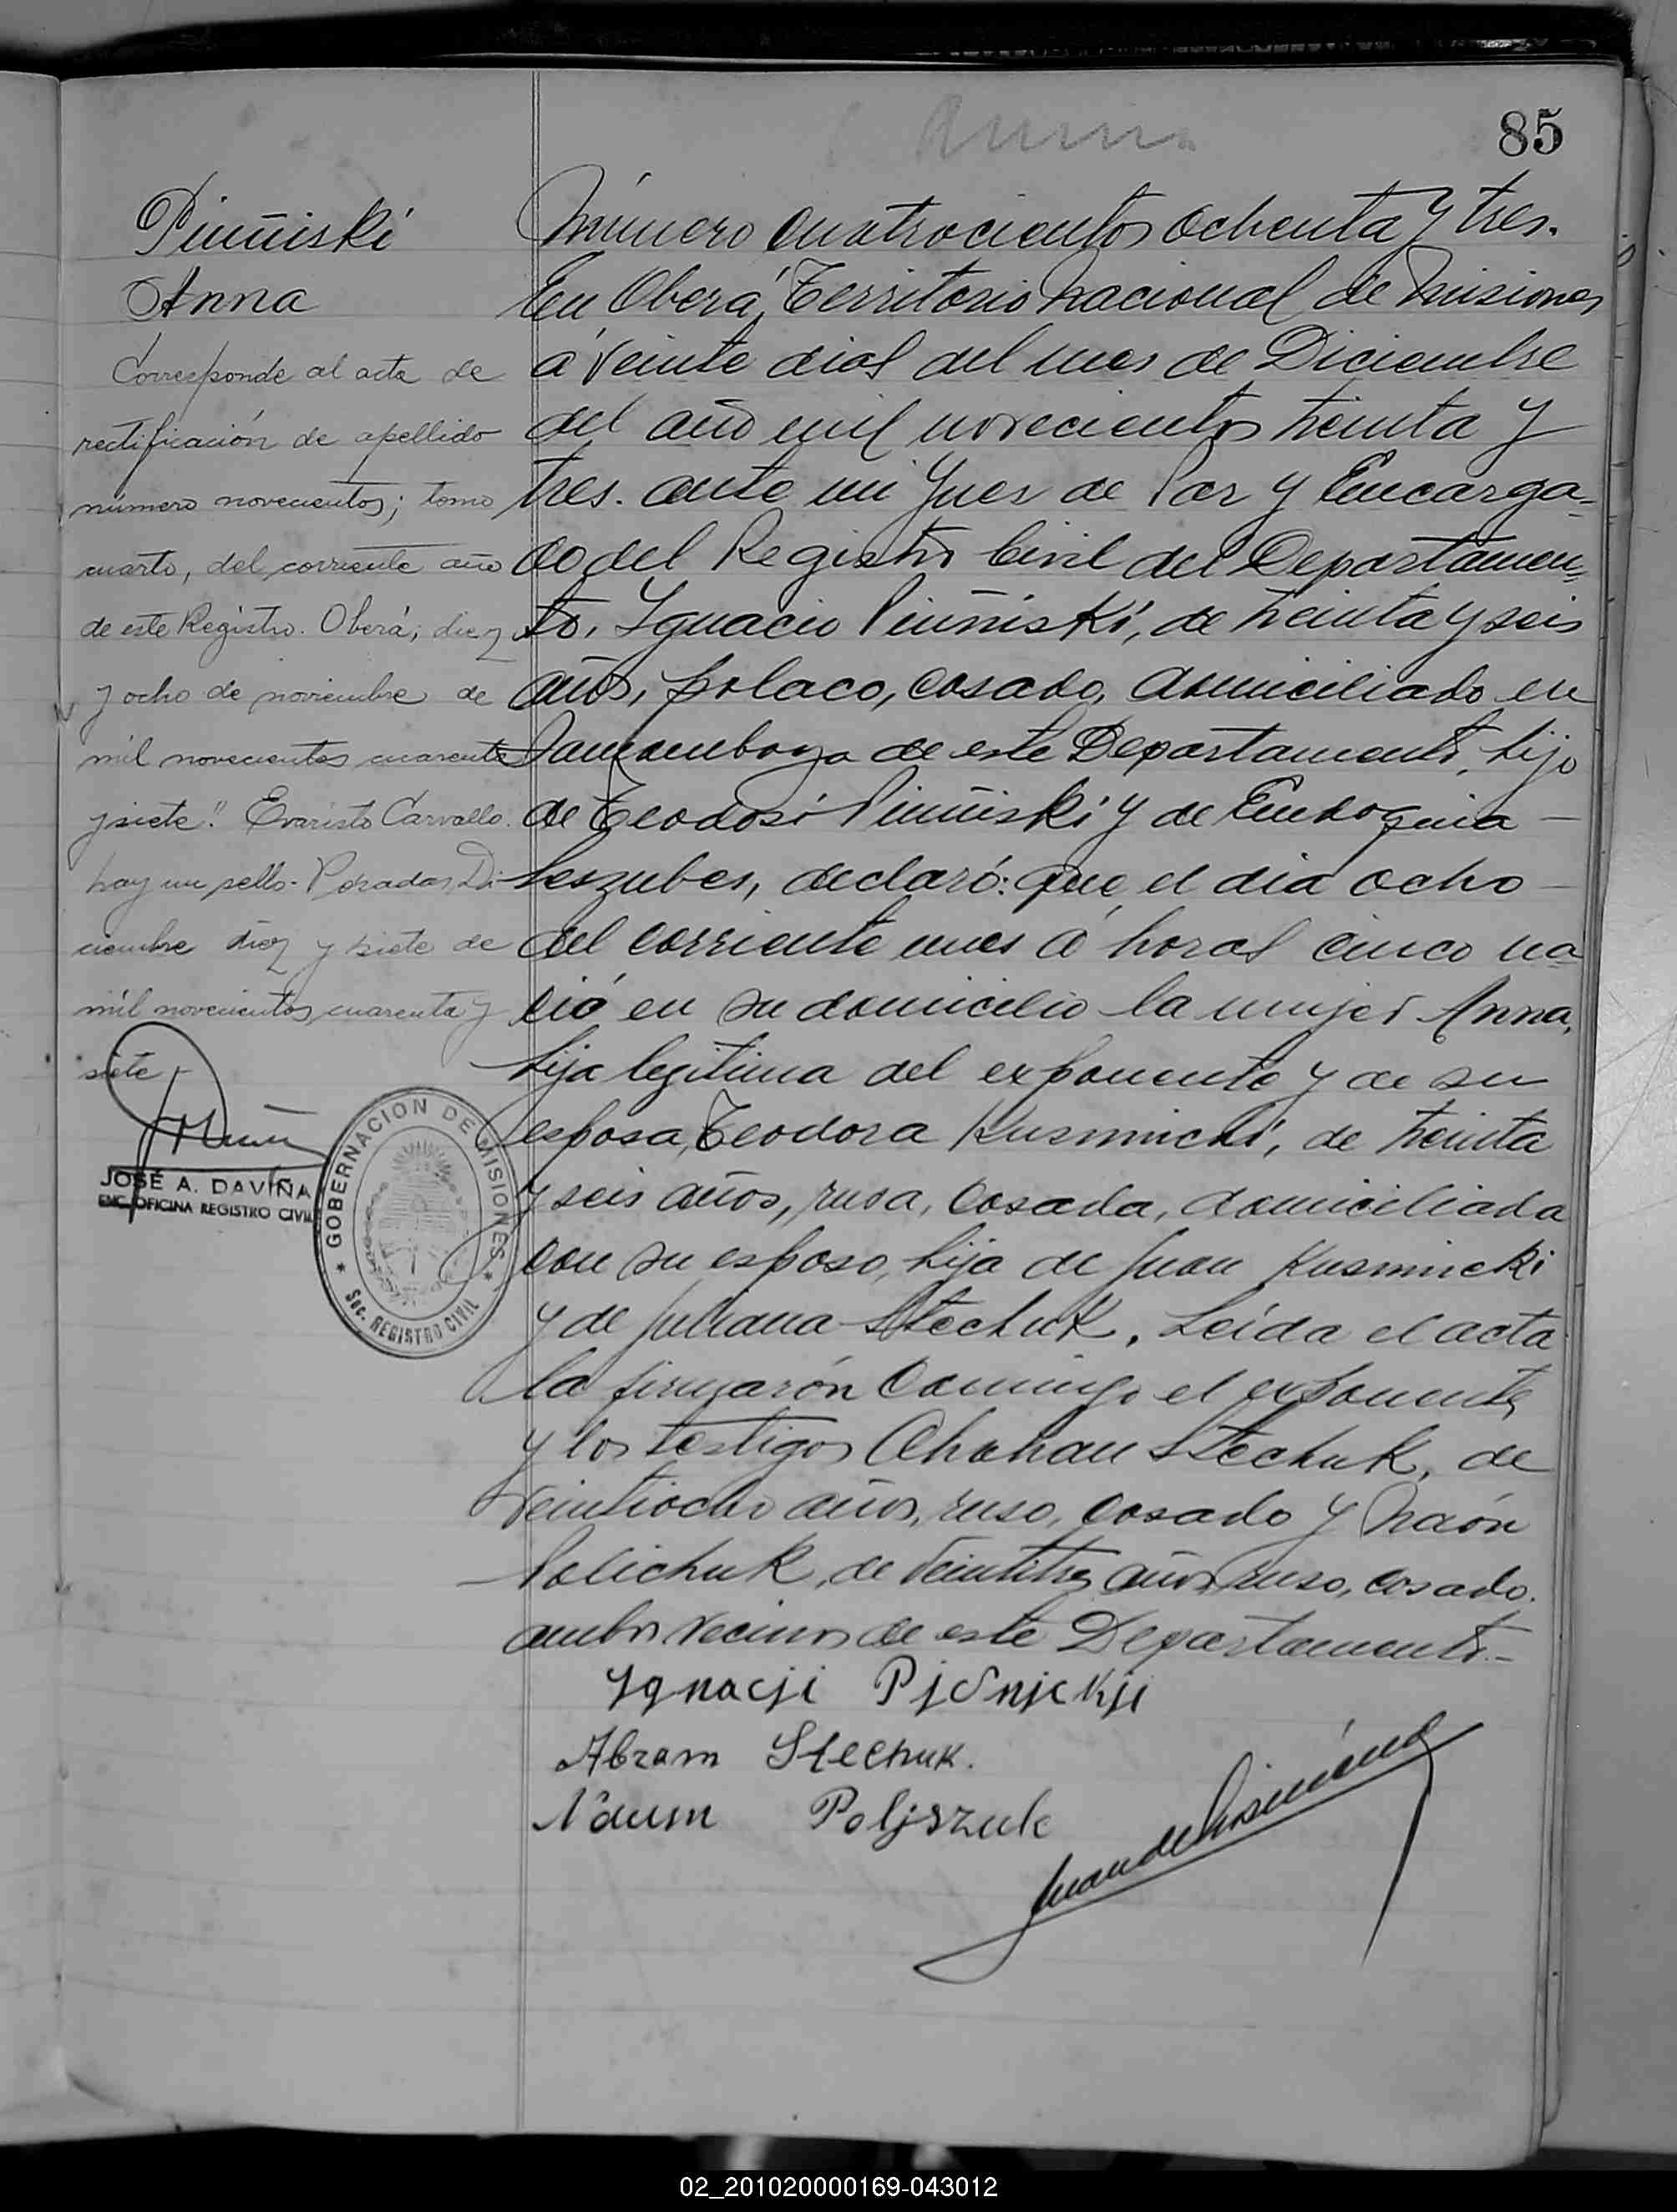 85
Piuñiski
Anna
Corresponde al acta de
rectificación de apellido
número novecientos; tomo
cuarto, del corriente año
de este Registro. Oberá; diez
y ocho de noviembre de
mil novecientos cuarenta
y siete". Evaristo Carvallo.
hay un sello. Posadas, Di-
ciembre diez y siete de
mil novecientos cuarenta y
siete
JOSÉ A. DAVIÑA
ENC. OFICINA REGISTRO CIVIL
GOBERNACION DE MISIONES
Sec. REGISTRO CIVIL
Número cuatrocientos ochenta y tres.
En Oberá, Territorio Nacional de Misiones
á veinte dias del mes de Diciembre
del año mil novecientos treinta y
tres. ante mi Juez de Paz y Encarga-
do del Registro Civil del Departamen-
to, Ygnacio Piuñiski, de treinta y seis
años, polaco, casado, domiciliado en
de este Departamento, hijo
de Teodosi Piuñiski y de
declaró: que el dia ocho
del corriente mes á horas cinco na-
ció en su domicilio la mujer Anna,
hija legitima del exponente y de su
esposa, Teodora Kusmicki, de treinta
y seis años, rusa, casada, domiciliada
con su esposo, hija de Juan Kusmicki
y de Juliana Stechuk. Leida el acta
la firmarón conmigo el exponente
y los testigos Stechuk, de
veintiocho años, ruso, casado y Naón
Polichuk, de veintitres años, ruso, casado.
ambos vecinos de este Departamento.-
Ignacji
Abram Stechuk.
Naum Poljszuk
02_201020000169-043012